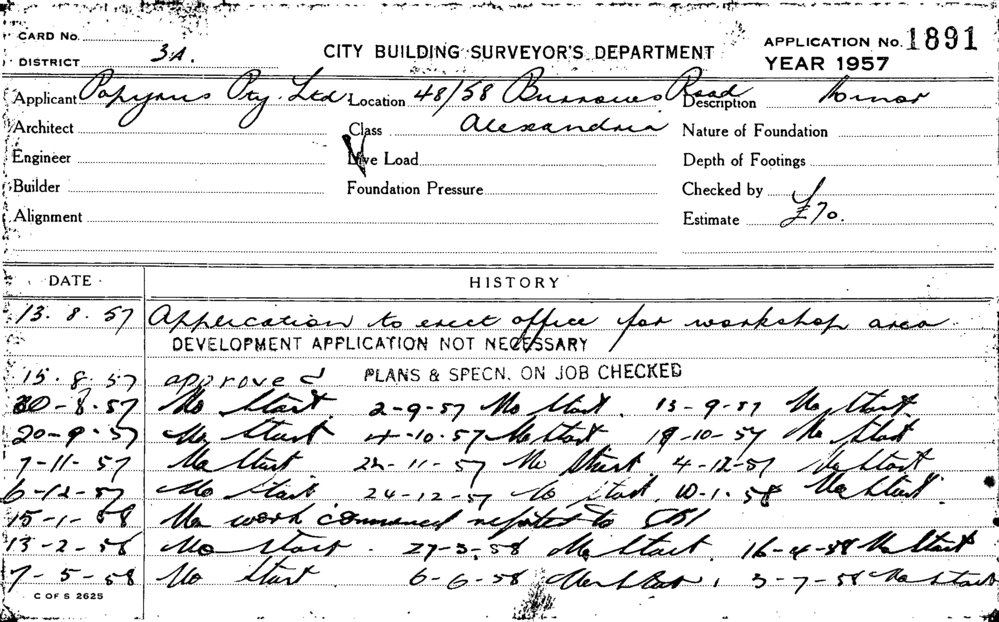 CARD No.
DISTRICT 3A.
CITY BUILDING SURVEYOR'S DEPARTMENT
APPLICATION No. 1891
YEAR 1957
Applicant Papyrus Pty. Ltd. Location 48/58 Burrows Road Description Minor
Architect Class Alexandria Nature of Foundation
Engineer Live Load Depth of Footings
Builder Foundation Pressure Checked by
Alignment Estimate £70.
DATE HISTORY
13.8.57 Application to erect office for workshop area
DEVELOPMENT APPLICATION NOT NECESSARY
15.8.57 approved PLANS & SPECN. ON JOB CHECKED
30-8-57 No Start 2-9-57 No Start. 13-9-57 No Start.
20-9-57 No Start 4-10-57 No Start 18-10-57 No Start
7-11-57 No Start 22-11-57 No Start 4-12-57 No Start
6-12-57 No Start 24-12-57 No Start. 10-1-58 No Start.
15-1-58 No work commenced to
13-2-58 No Start. 27-3-58 No Start. 16-4-58 No Start
7-5-58 No Start. 6-6-58 No Start. 3-7-58 No Start
C OF S 2625